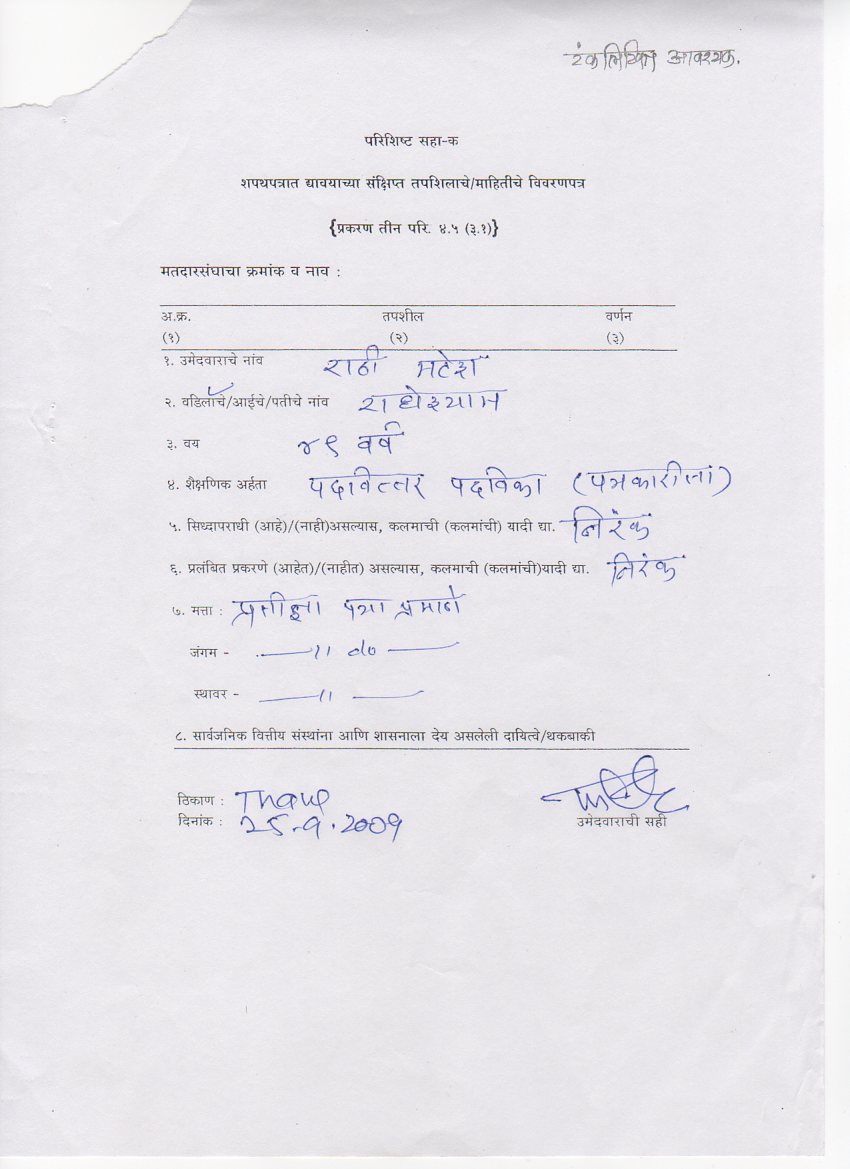 टंकलिखित आवश्यक.
परिशिष्ट सहा-क
शपथपत्रात द्यावयाच्या संक्षिप्त तपशिलाचे/माहितीचे विवरणपत्र
{प्रकरण तीन परि. ४.५ (३.१)}
मतदारसंघाचा क्रमांक व नाव :
अ.क्र. तपशील वर्णन
(१) (२) (३)
१. उमेदवाराचे नांव राठी महेश
२. वडिलांचे/आईचे/पतीचे नांव राधेश्याम
३. वय ४९ वर्ष
४. शैक्षणिक अर्हता पदवित्तर पदविका (पत्रकारीता)
५. सिध्दापराधी (आहे)/(नाही)असल्यास, कलमाची (कलमांची) यादी द्या. निरंक
६. प्रलंबित प्रकरणे (आहेत)/(नाहीत) असल्यास, कलमाची (कलमांची)यादी द्या. निरंक
७. मत्ता : प्रतीज्ञा पत्रा प्रमाणे
जंगम - — 11 do —
स्थावर - — 11 —
८. सार्वजनिक वित्तीय संस्थांना आणि शासनाला देय असलेली दायित्वे/थकबाकी
ठिकाण : Thane
दिनांक : 25.9.2009
उमेदवाराची सही